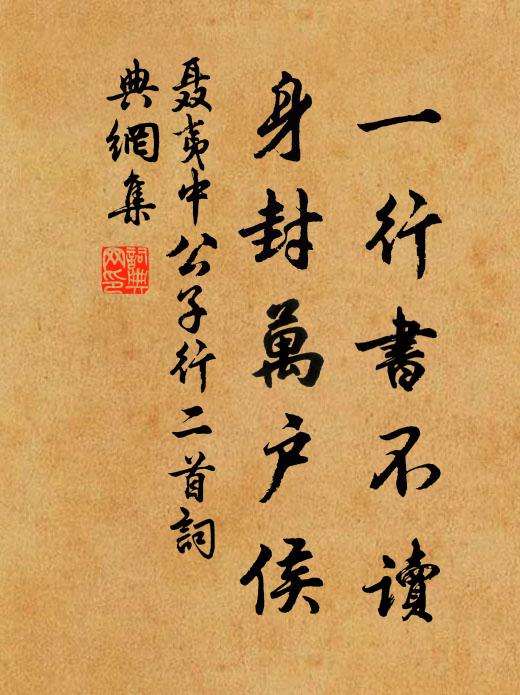 一行書不讀
身封萬户侯
聶夷中公子行二首詞
典網集
詞典
网印